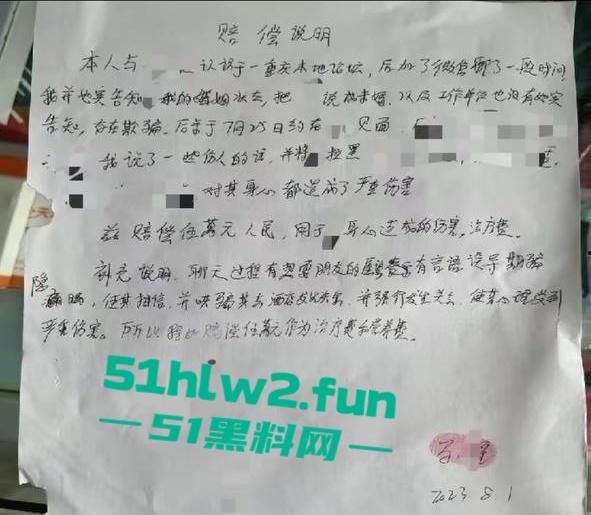 赔偿说明
本人与 认识于一重庆本地论坛,后加了微信聊了一段时间
我并也实告知 我的婚姻状态,把 说成未婚,以及工作单位也没有如实
告知,存在欺骗。后于7月25日约在 见面
我说了一些伤人的话,并将 拉黑
对其身心都造成了严重伤害
兹赔偿伍萬元人民,用于 身心造成的伤害。治疗费。
补充说明,聊天过程有想要朋友的 有言语误导期骗
隐瞒,使其相信,并哄骗其去酒店发生关系,并强行发生关系,使其心理受到
严重伤害。所以特此赔偿伍萬元作为治疗费和营养费。
51hlw2.fun
51黑料网
2023 8 1